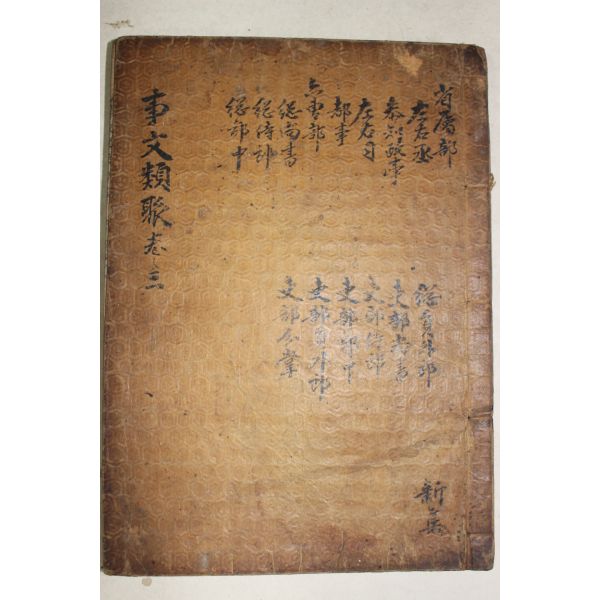 省屬部
左右丞
參知政事
左右司
都事
六曹部
總尚書
總侍郎
總郎中
總員外郎
吏部尚書
吏部侍郎
吏部郎中
吏部員外郎
吏部
新集
事文類聚 卷之三